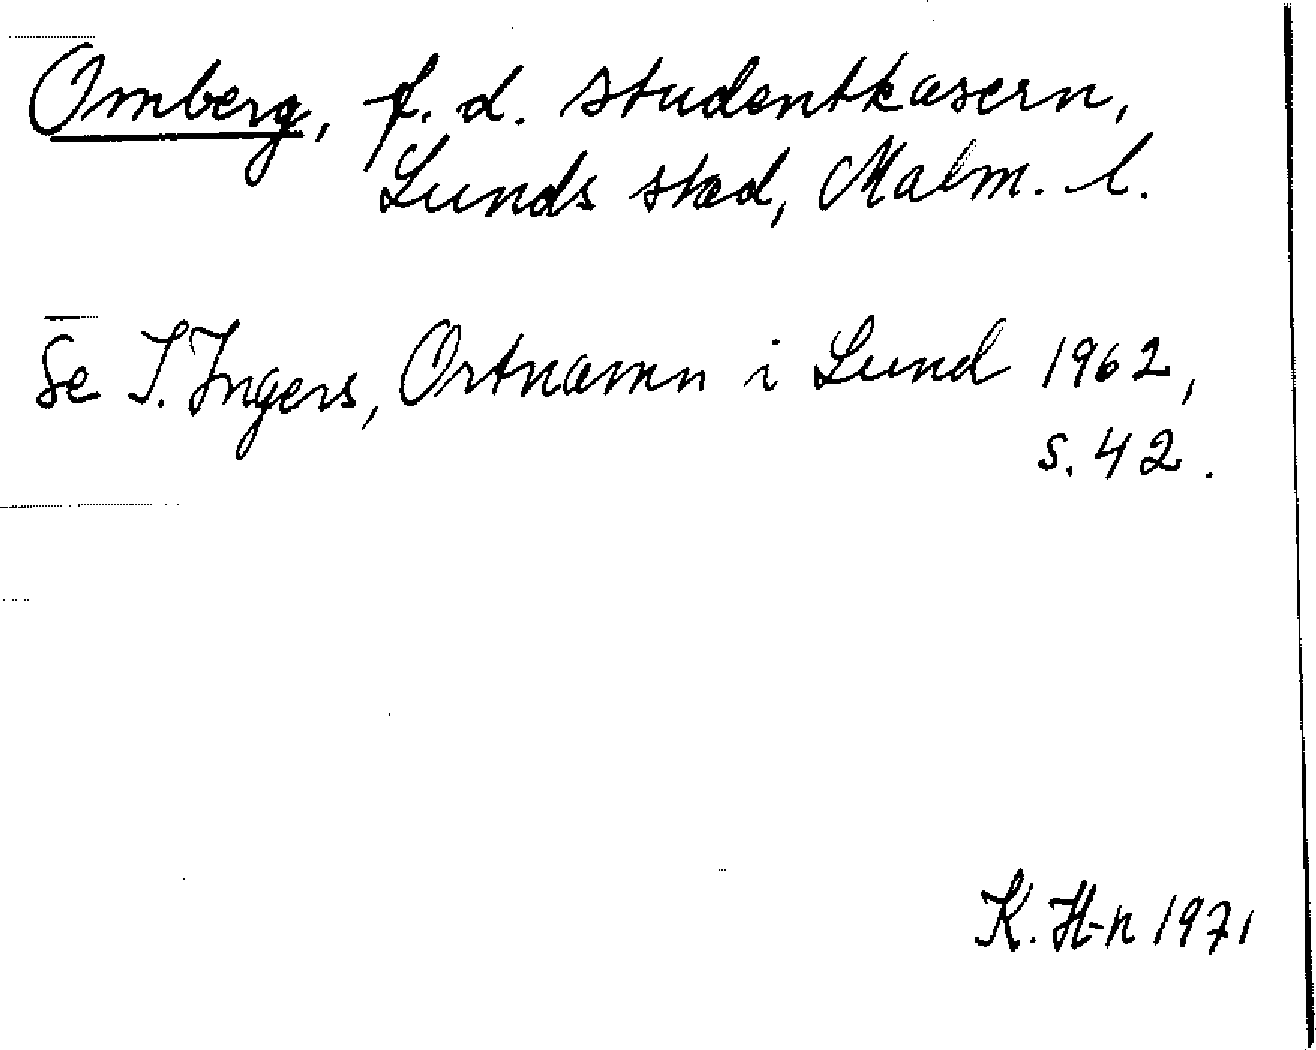 Omberg, f. d. studentkasern,
Lunds stad, Malm. l.
Se I. Ingers, Ortnamn i Lund 1962,
s. 42.
K. H-n 1971